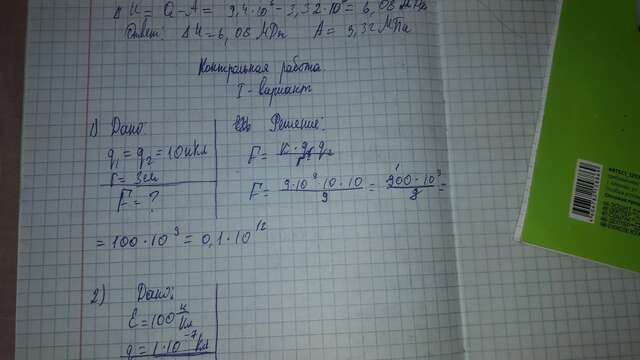 Δ U = Q - A = 9,4·10⁶ - 3,32·10⁶ = 6,08 МДж
Ответ: Δ U = 6,08 МДж A = 3,32 МПа
Контрольная работа
I - вариант
1) Дано: Решение:
q₁ = q₂ = 10 нкл
r = 3см
F = ?
F = k · q₁ q₂ / r²
F = 9·10⁹·10·10 / 9 = 900·10⁹ / 9 =
= 100·10⁹ = 0,1·10¹²
2) Дано:
E = 100 н/Кл
q = 1·10⁻⁷ Кл